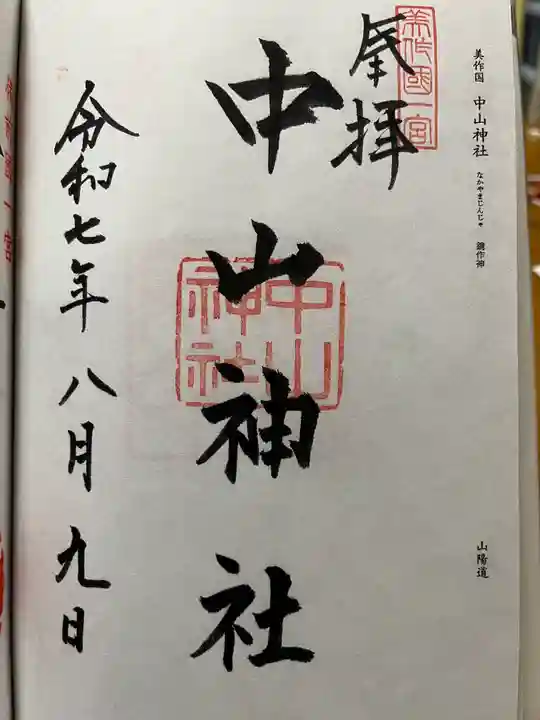 美作国 中山神社 なかやまじんじゃ 鏡作神
山陽道
美作國一宮
奉拝
中山神社
中山神社
令和七年八月九日